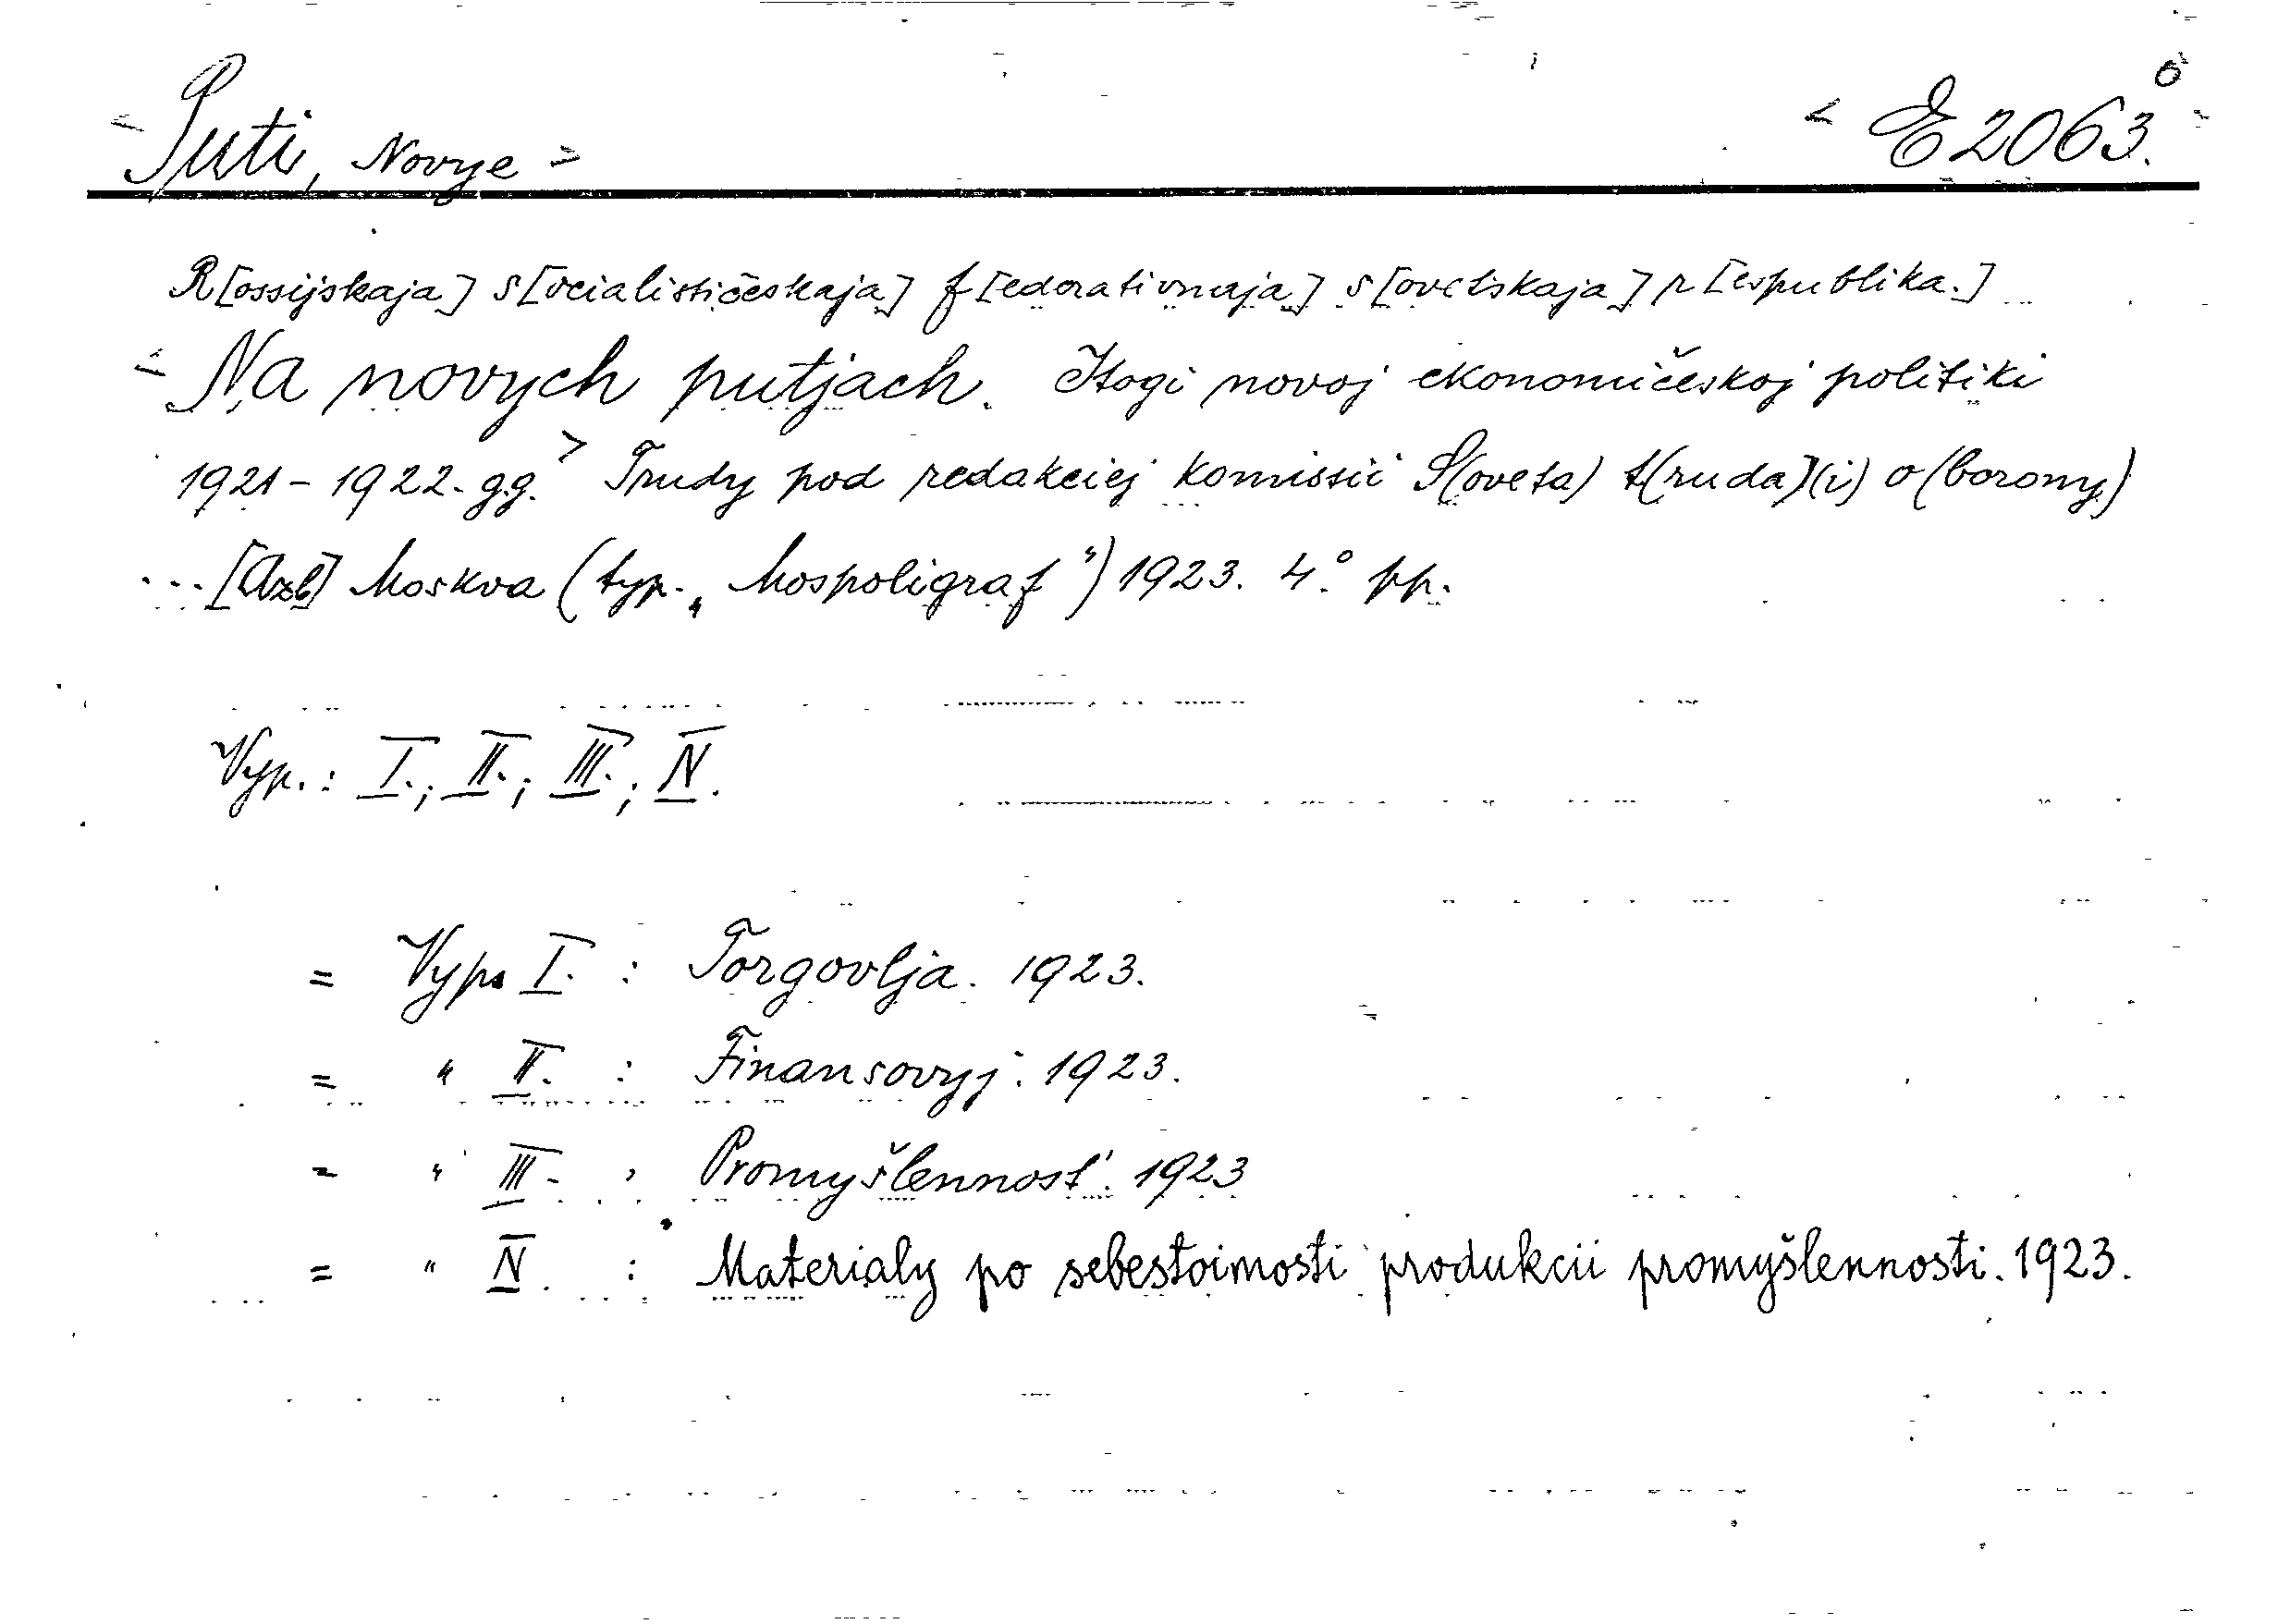 Puti, Novye E 2063. ö
R[ossijskaja] s[ocialističeskaja] f[ederativnaja] s[ovetskaja] r[espublika.]
Na novych putjach. Itogi novoj ekonomičeskoj politiki
1921-1922. g.g. Trudy pod redakciej komissii S(oveta) t(ruda)(i) o(borony)
... [Azb] Moskva (typ. „Mospoligraf“) 1923. 4.° pp.
Vyp.: I.; II.; III.; IV.
= Vyp. I. : Torgovlja. 1923.
= " II. : Finansovyj. 1923.
= " III. : Promyšlennost'. 1923
= " IV. : Materialy po sebestoimosti produkcii promyšlennosti. 1923.